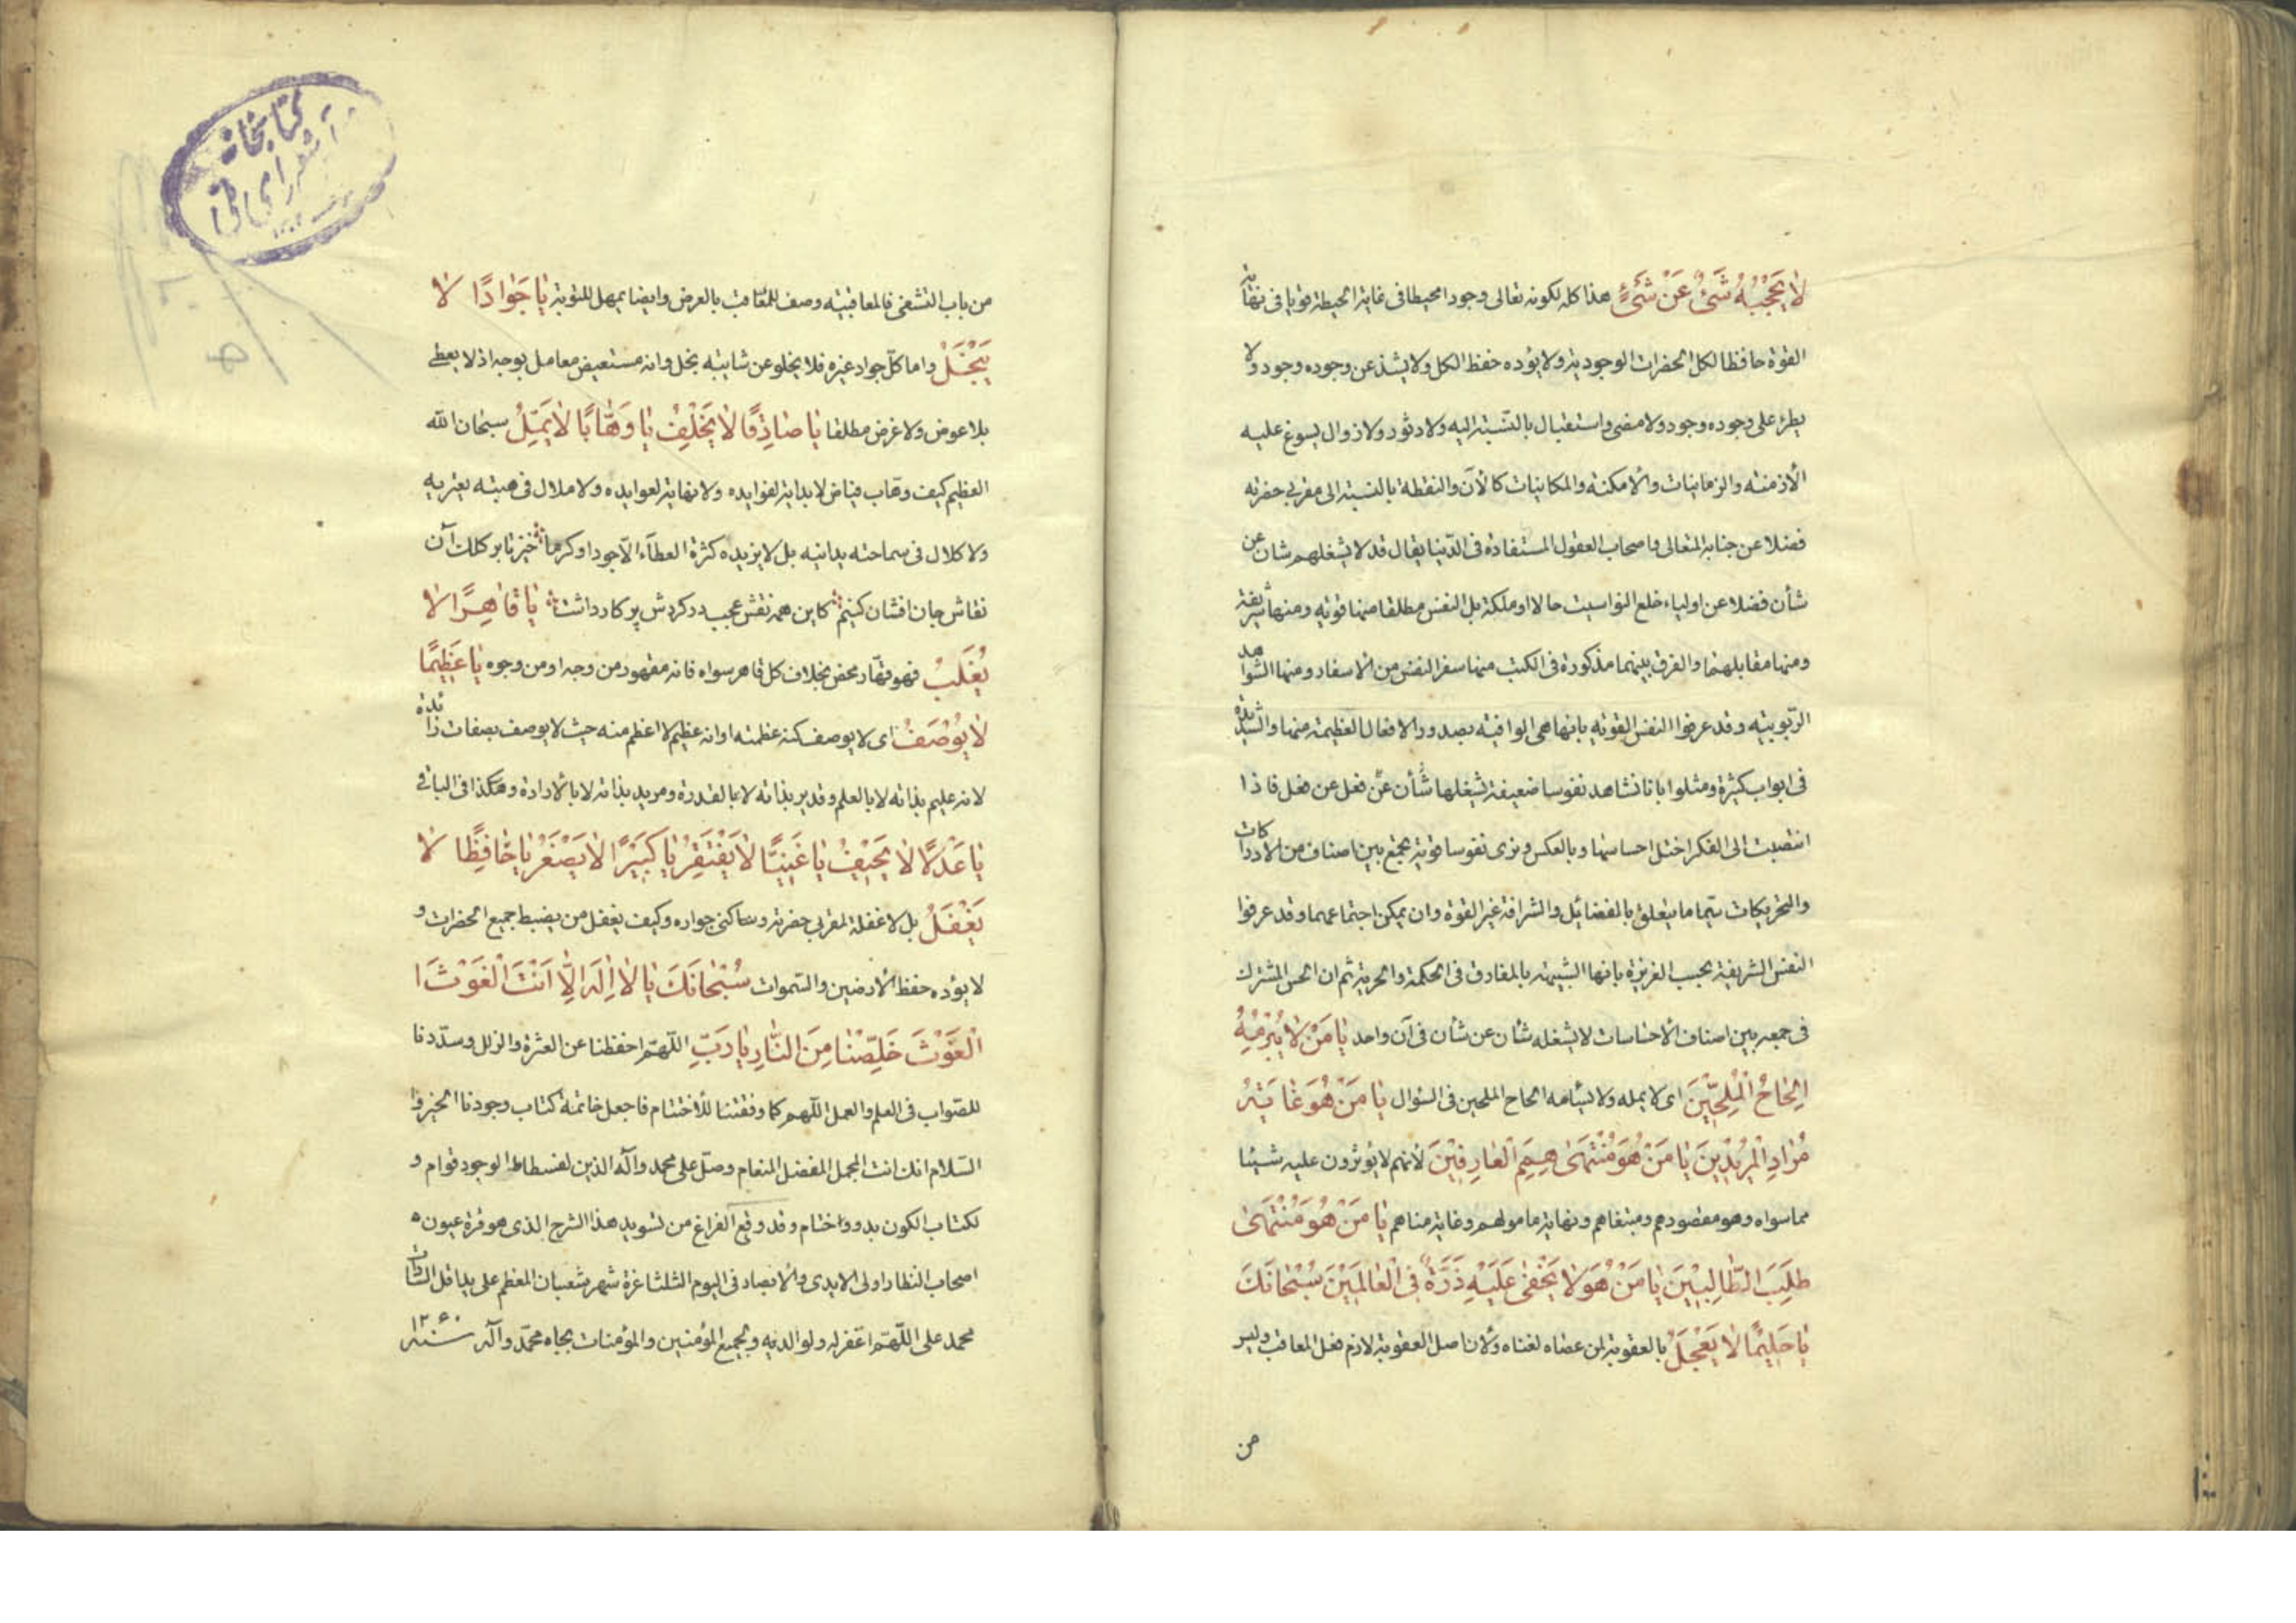 لا يَحْجُبُهُ شَيْءٌ عَنْ شَيْءٍ هذا كله لكونه تعالى وجودا محيطا فى غاية الحيطة قويا فى نهاية
القوة حافظا لكل الحضرات الوجودية ولا يؤده حفظ الكل ولا يشذ عن وجوده وجود ولا
يطرء على وجوده وجود ولا مضى واستقبال بالنسبة اليه ولا دثور ولا زوال يسوغ عليه
الأزمنة والزمانيات والأمكنة والمكانيات كالآن والنقطة بالنسبة الى مقربى حضرته
فضلا عن جنابه المتعالى واصحاب العقول المستفادة فى الدنيا يقال قد لا يشغلهم شان عن
شأن فضلا عن اولياء خلع النواسيت حالا او ملكة بل النفس مطلقا منها قوية ومنها شريفة
ومنها مقابلهما والفرق بينهما مذكورة فى الكتب منها سفر النفس من الاسفار ومنها الشواهد
الربوبية وقد عرفوا النفس القوية بانها هى الوافية بصدور الافعال العظيمة منها والشديدة
فى ابواب كثيرة ومثلوا بانا نشاهد نفوسا ضعيفة يشغلها شأن عن فعل عن فعل فاذا
انتصبت الى الفكر اختل احساسها وبالعكس ونرى نفوسا قوية تجمع بين اصناف من الادراكات
والتحريكات سيما ما يتعلق بالفضائل والشرافة غير القوة وان يمكن اجتماعهما وقد عرفوا
النفس الشريفة بحسب الغريزة بانها الشبيهة بالمفارق فى الحكمة والحرية ثم ان الحس المشترك
فى جمعه بين اصناف الأحساسات لا يشغله شأن عن شأن فى آن واحد يا مَنْ لا يُبْرِمُهُ
اِلْحاحُ الْمُلِحّينَ اى لا يمله ولا يسأمه الحاح الملحين فى السؤال يا مَنْ هُوَ غايَةُ
مُرادِ الْمُريدينَ يا مَنْ هُوَ مُنْتَهى هِمَمِ الْعارِفينَ لأنهم لا يؤثرون عليه شيئا
مما سواه وهو مقصودهم ومبتغاهم ونهاية مامولهم وغاية مناهم يا مَنْ هُوَ مُنْتَهى
طَلَبِ الطّالِبينَ يا مَنْ هُوَ لا يَخْفى عَلَيْهِ ذَرَّةٌ فِى الْعالَمينَ سُبْحانَكَ
يا حَليمًا لا يَعْجَلُ بالعقوبة لمن عصاه لغناه ولأن اصل العقوبة لازم فعل المعاقب وليس
من
من باب التشفى فالمعاقبية وصف للمعاقب بالعرض وايضا يمهل للتوبة يا جَوادًا لا
يَبْخَلُ واما كلّ جواد غيره فلا يخلو عن شايبة بخل وانه مستعيض معامل بوجه اذ لا يعطى
بلا عوض ولا غرض مطلقا يا صادِقًا لا يُخْلِفُ يا وَهّابًا لا يَمَلُّ سبحان الله
العظيم كيف وهاب فياض لا بداية لفوايده ولا نهاية لعوايده ولا ملال فى هبته يعتريه
ولا كلال فى سماحته يدانيه بل لا يزيده كثرة العطآء الّا جودا وكرما خيز تا بر كلك آن
نقاش جان افشان كنيم كاين همه نقش عجب در گردش پرگار داشت يا قاهِرًا لا
يُغْلَبُ فهو قهّار محض بخلاف كل قاهر سواه فانه مقهور من وجه او من وجوه يا عَظيمًا
لا يُوصَفُ اى لا يوصف كنه عظمته او انه عظيم لا اعظم منه حيث لا يوصف بصفات زائدة
لانه عليم بذاته لا بالعلم وقدير بذاته لا بالقدرة ومريد بذاته لا بالأرادة وهكذا فى الباقى
يا عَدْلًا لا يَحيفُ يا غَنِيًّا لا يَفْتَقِرُ يا كَبيرًا لا يَصْغَرُ يا حافِظًا لا
يَغْفَلُ بل لا غفلة لمقربى حضرته وساكنى جواره وكيف يغفل من يضبط جميع الحضرات و
لا يؤده حفظ الأرضين والسموات سُبْحانَكَ يا لا اِلهَ اِلّا اَنْتَ الْغَوْثَ ا
الْغَوْثَ خَلِّصْنا مِنَ النّارِ يا رَبِّ اللّهمّ احفظنا عن العثرة والزلل وسدّدنا
للصّواب فى العلم والعمل اللّهم كما وفقتنا للأختتام فاجعل خاتمة كتاب وجودنا الخير و
السّلام انك انت المجمل المفضل المنعام وصلّ على محمد وآله الذين لفسطاط الوجود قوام و
لكتاب الكون بدو واختام وقد وقع الفراغ من تسويد هذا الشرح الذى هو قرة عيون
اصحاب النظار اولى الايدى والأبصار فى اليوم الثلثا غرة شهر شعبان المعظم على يد اقل السادات
محمد على اللّهمّ اغفر له ولوالديه ولجميع المؤمنين والمؤمنات بجاه محمّد وآله سنه ١٢۶٠
كتابخانه